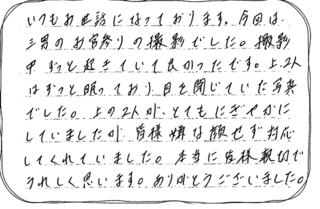 いつもお世話になっております。今回は、
三男のお宮参りの撮影でした。撮影
中ずっと起きていて良かったです。上2人
はずっと眠っており目を閉じていた写真
でした。上の2人が、とてもにぎやかに
していましたが皆様嫌な顔せず対応
してくれていました。本当に皆様親切で
うれしく思います。ありがとうございました。